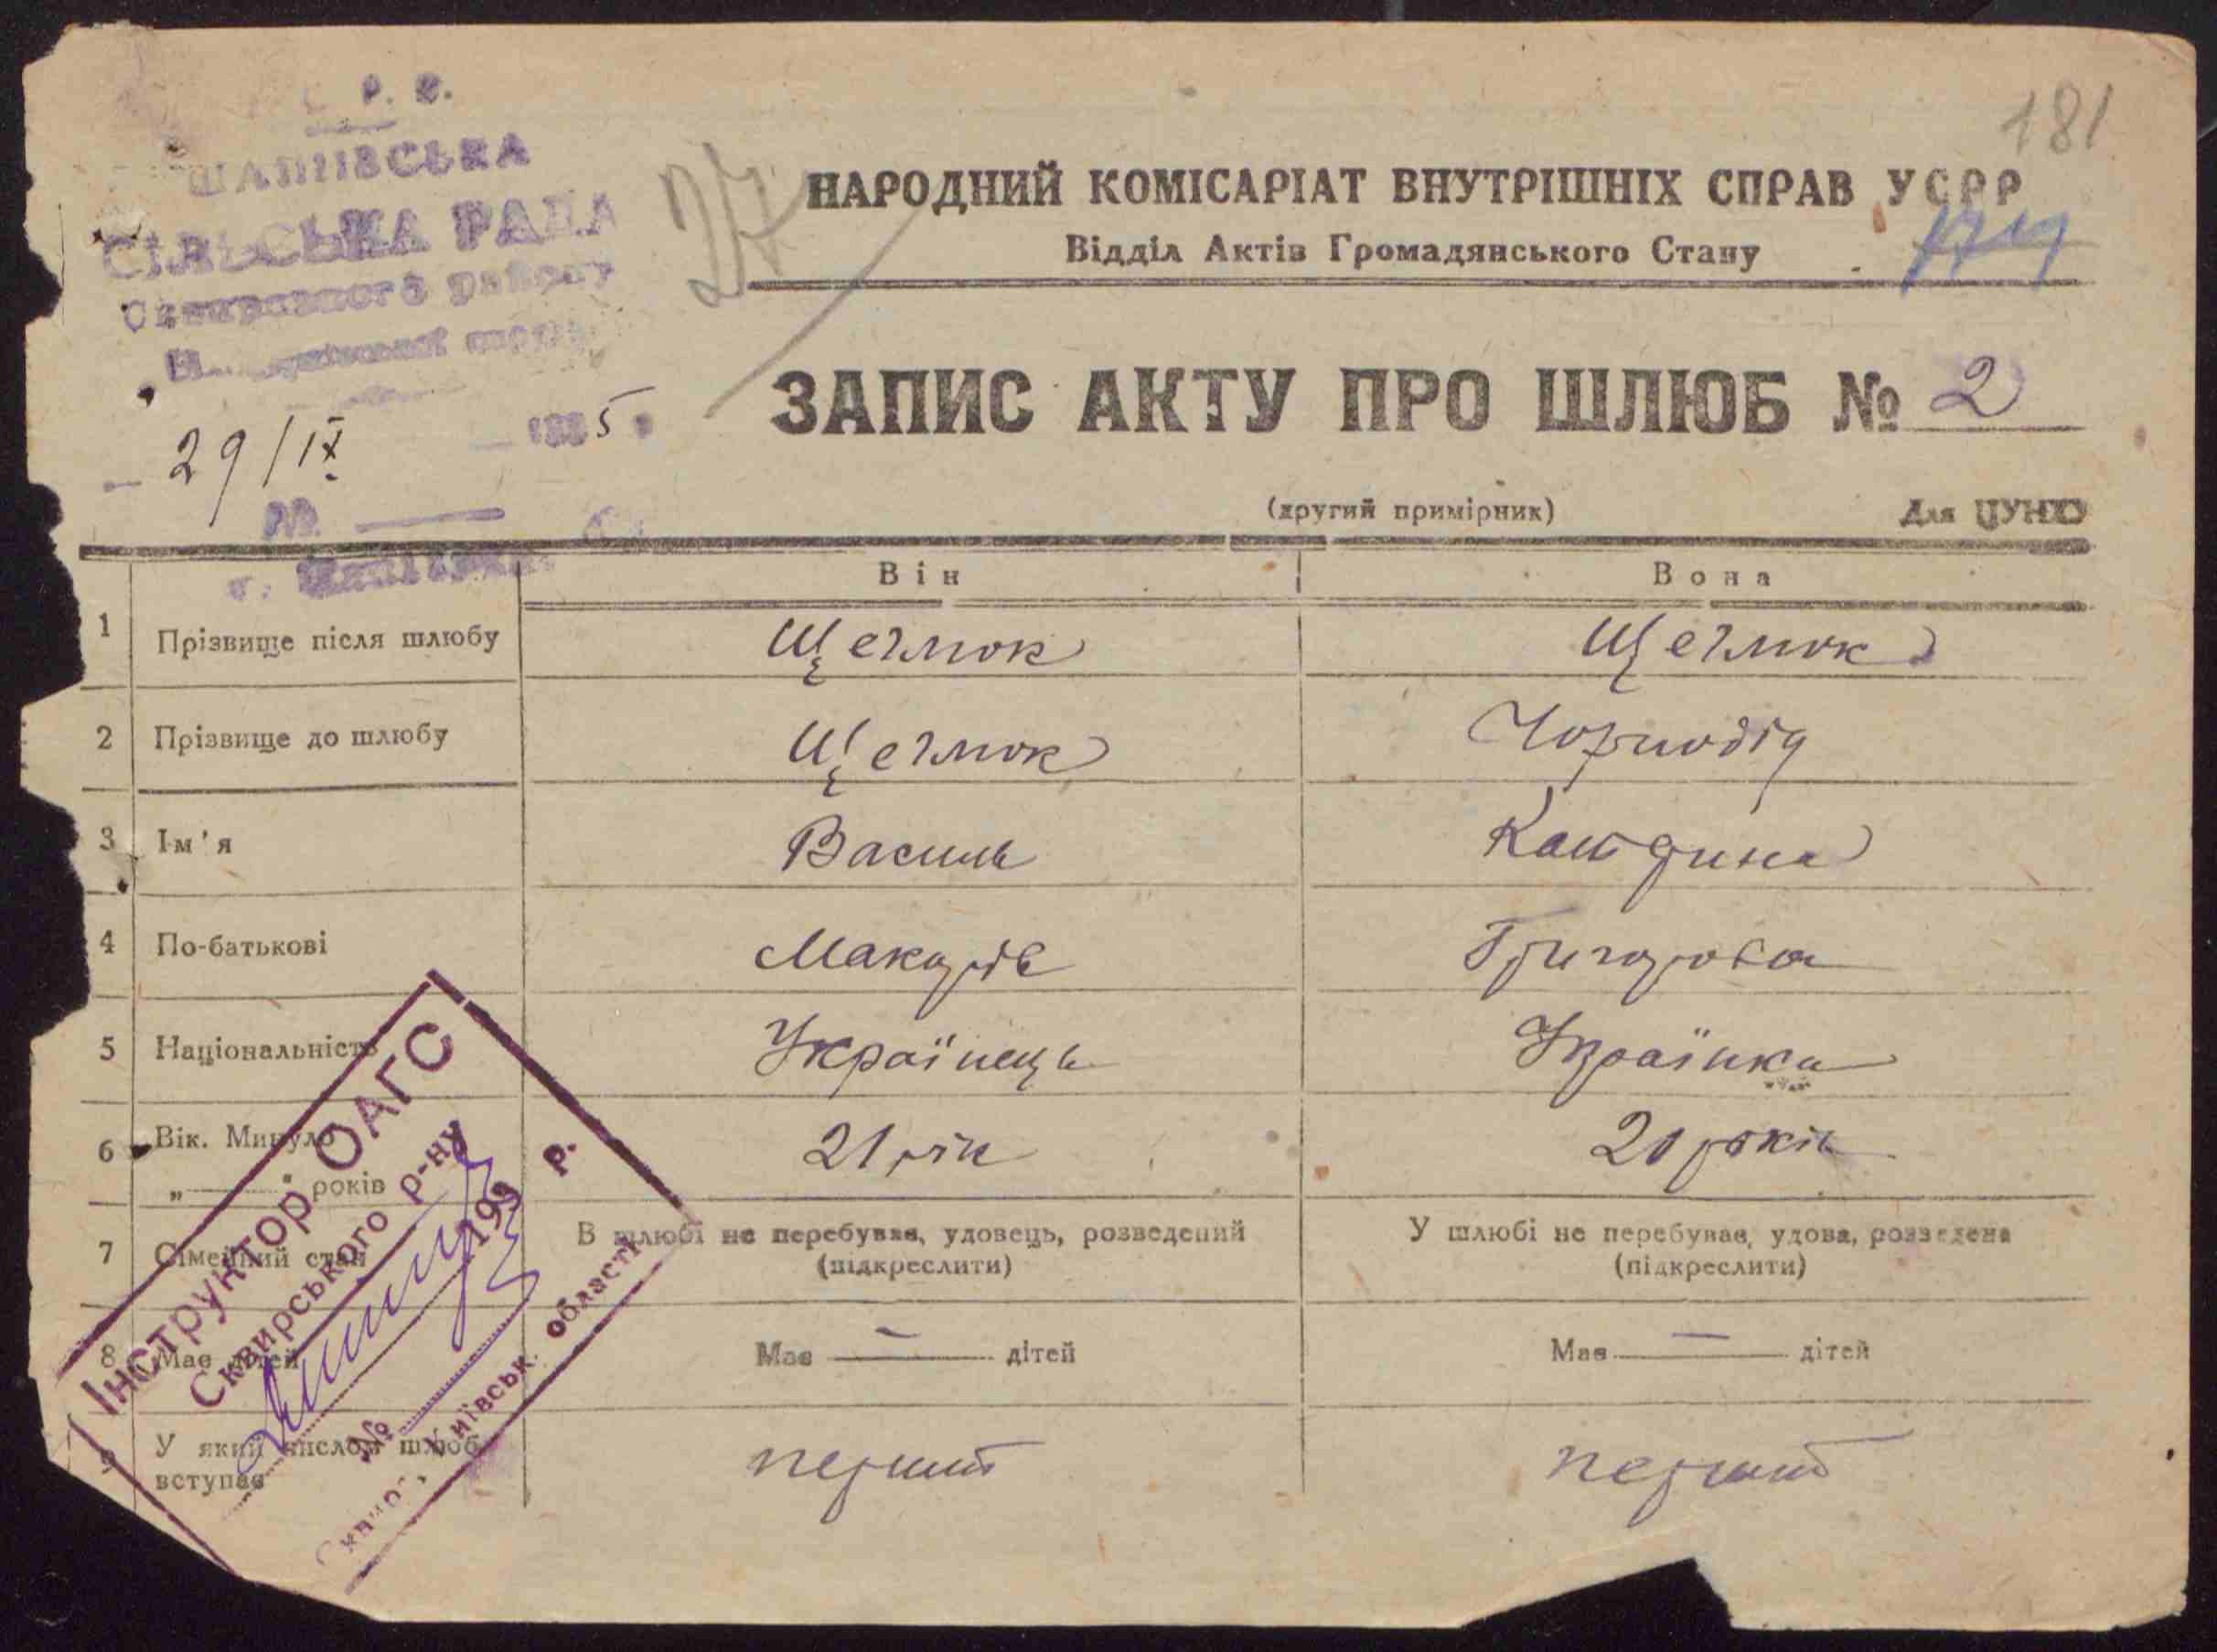 181
27
НАРОДНИЙ КОМІСАРІАТ ВНУТРІШНІХ СПРАВ УСРР
Відділ Актів Громадянського Стану
ШАПІЇВСЬКА
СІЛЬСЬКА РАДА
району
29/IX 1935
№
ЗАПИС АКТУ ПРО ШЛЮБ № 2
(другий примірник)
Для ЦУНХО
Він Вона
1 Прізвище після шлюбу
2 Прізвище до шлюбу Чорнодід
3 Ім'я Василь
4 По-батькові Макарів Григорова
5 Національність Українець Українка
6 Вік. Минуло „ “ років 21 рік 20 років
7 Сімейний стан В шлюбі не перебував, удовець, розведений (підкреслити) У шлюбі не перебував, удова, розведена (підкреслити)
8 Має дітей Має — дітей Має — дітей
9 У який числом шлюб вступає перший перший
Інструктор ОАГС
Сквирського р-ну
193 р.
№
Київськ. області